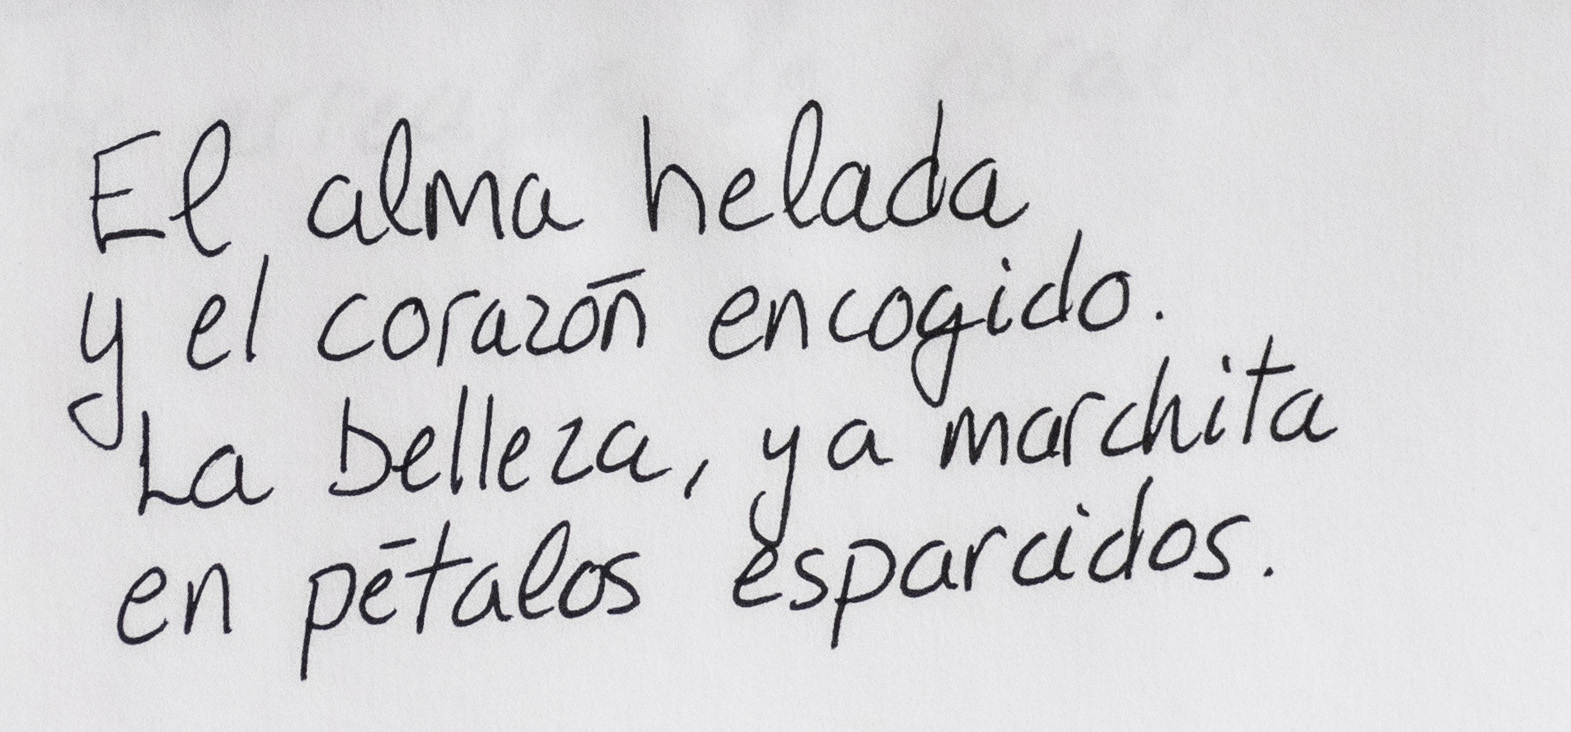 El alma helada
y el corazón encogido.
La belleza, ya marchita
en pétalos esparcidos.